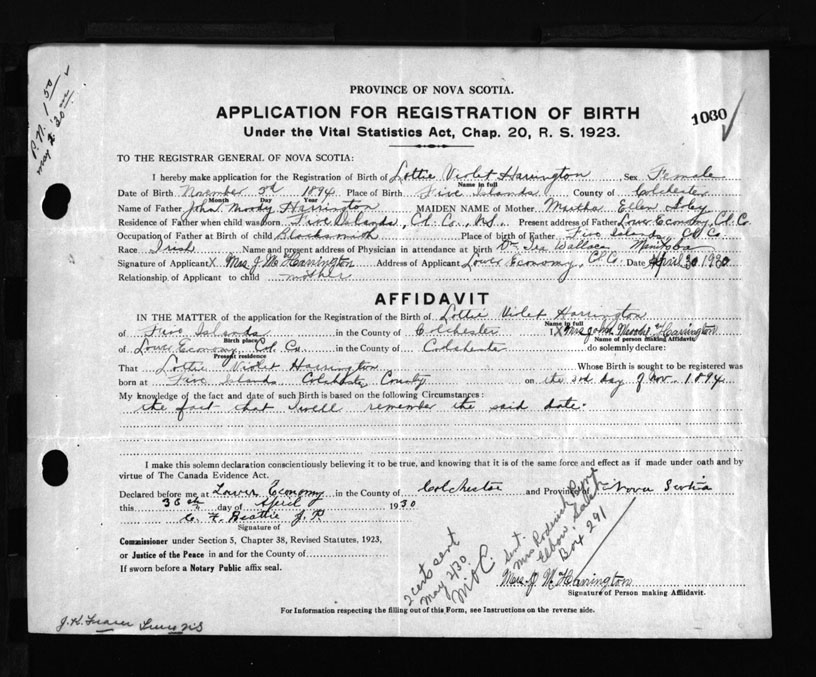 P.N. 1 50
May 2. 30
PROVINCE OF NOVA SCOTIA.
APPLICATION FOR REGISTRATION OF BIRTH
1030
Under the Vital Statistics Act, Chap. 20, R. S. 1923.
TO THE REGISTRAR GENERAL OF NOVA SCOTIA:
I hereby make application for the Registration of Birth of Lottie Violet Harrington Sex Female
Name in full
Date of Birth November 3rd 1894 Place of Birth Five Islands County of Colchester
Month Day Year
Name of Father John Moody Harrington MAIDEN NAME of Mother Martha Ellen
Residence of Father when child was born Five Islands, Col. Co., N.S. Present address of Father Lower Economy, Col. Co.
Occupation of Father at Birth of child Blacksmith Place of birth of Father Five Islands Col Co
Race Irish Name and present address of Physician in attendance at birth Dr. Ira Wallace Manitoba
Signature of Applicant X Mrs J M Harrington Address of Applicant Lower Economy, Col. Co. Date April 30 1930
Relationship of Applicant to child mother
AFFIDAVIT
IN THE MATTER of the application for the Registration of the Birth of Lottie Violet Harrington
Name in full
of Five Islands in the County of Colchester I, X Mrs John Harrington
Birth place Name of person making Affidavit.
of Lower Economy, Col. Co in the County of Colchester do solemnly declare:
Present residence
That Lottie Violet Harrington Whose Birth is sought to be registered was
born at Five Islands Colchester County on the 3rd day of Nov. 1894
My knowledge of the fact and date of such Birth is based on the following Circumstances:
the fact that I well remember the said date.
I make this solemn declaration conscientiously believing it to be true, and knowing that it is of the same force and effect as if made under oath and by
virtue of The Canada Evidence Act.
Declared before me at Lower Economy in the County of Colchester and Province of Nova Scotia
this 30th day of April 1930
C. F. Beattie J. P.
Signature of
Commissioner under Section 5, Chapter 38, Revised Statutes, 1923,
or Justice of the Peace in and for the County of
If sworn before a Notary Public affix seal.
2 certs sent
May 2/30
sent.
Mrs
Elbow, Sask
Box 291
Mrs. J. M Harrington
Signature of Person making Affidavit.
For Information respecting the filling out of this Form, see Instructions on the reverse side.
J. K. Fraser